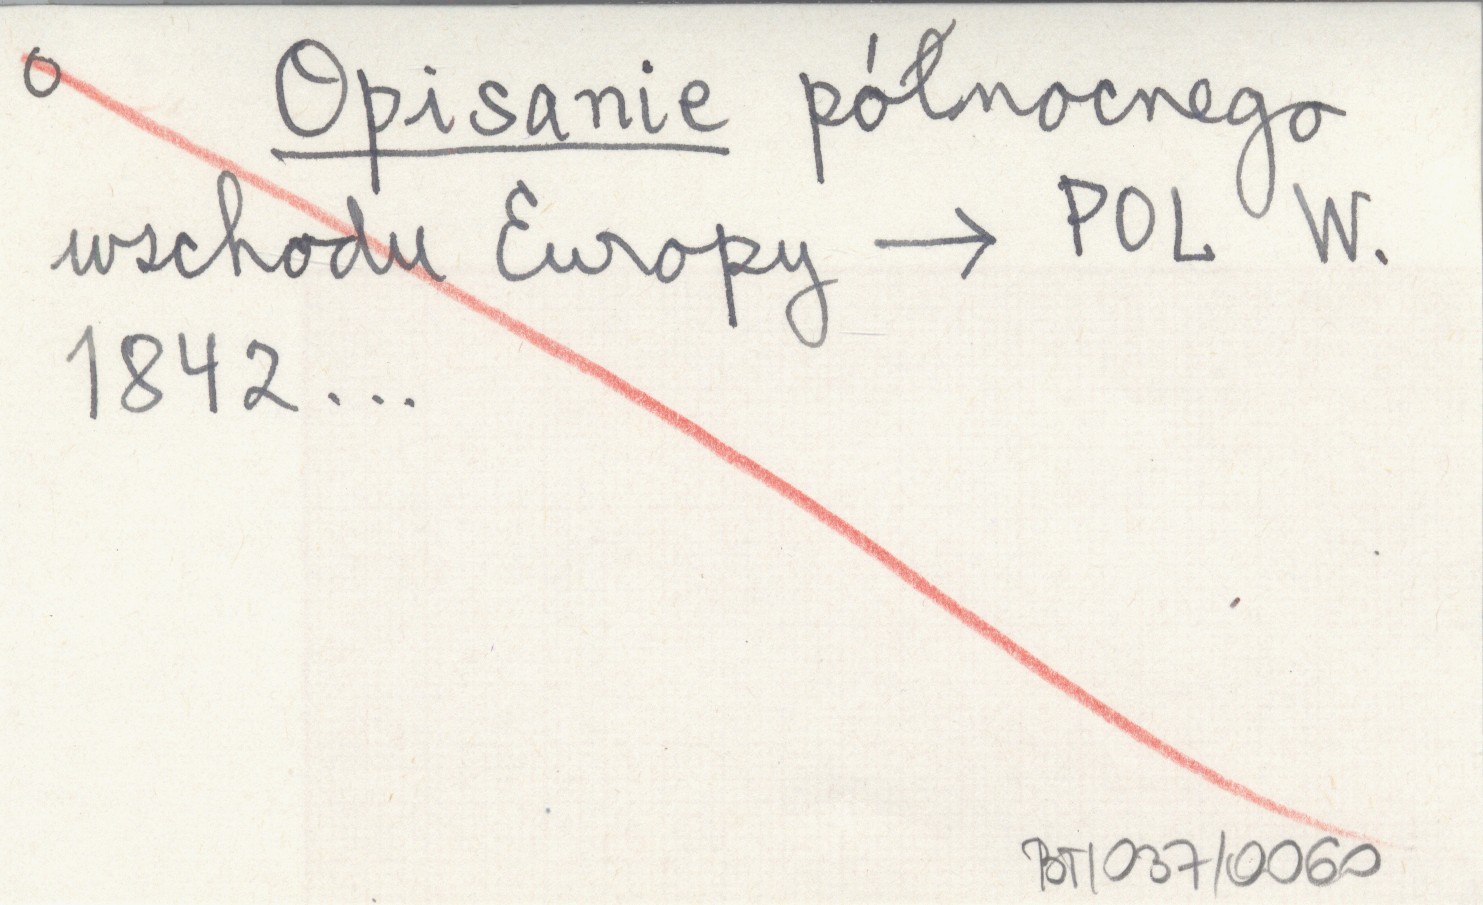 O Opisanie północnego
wschodu Europy → POL W.
1842...
BT/037/0060